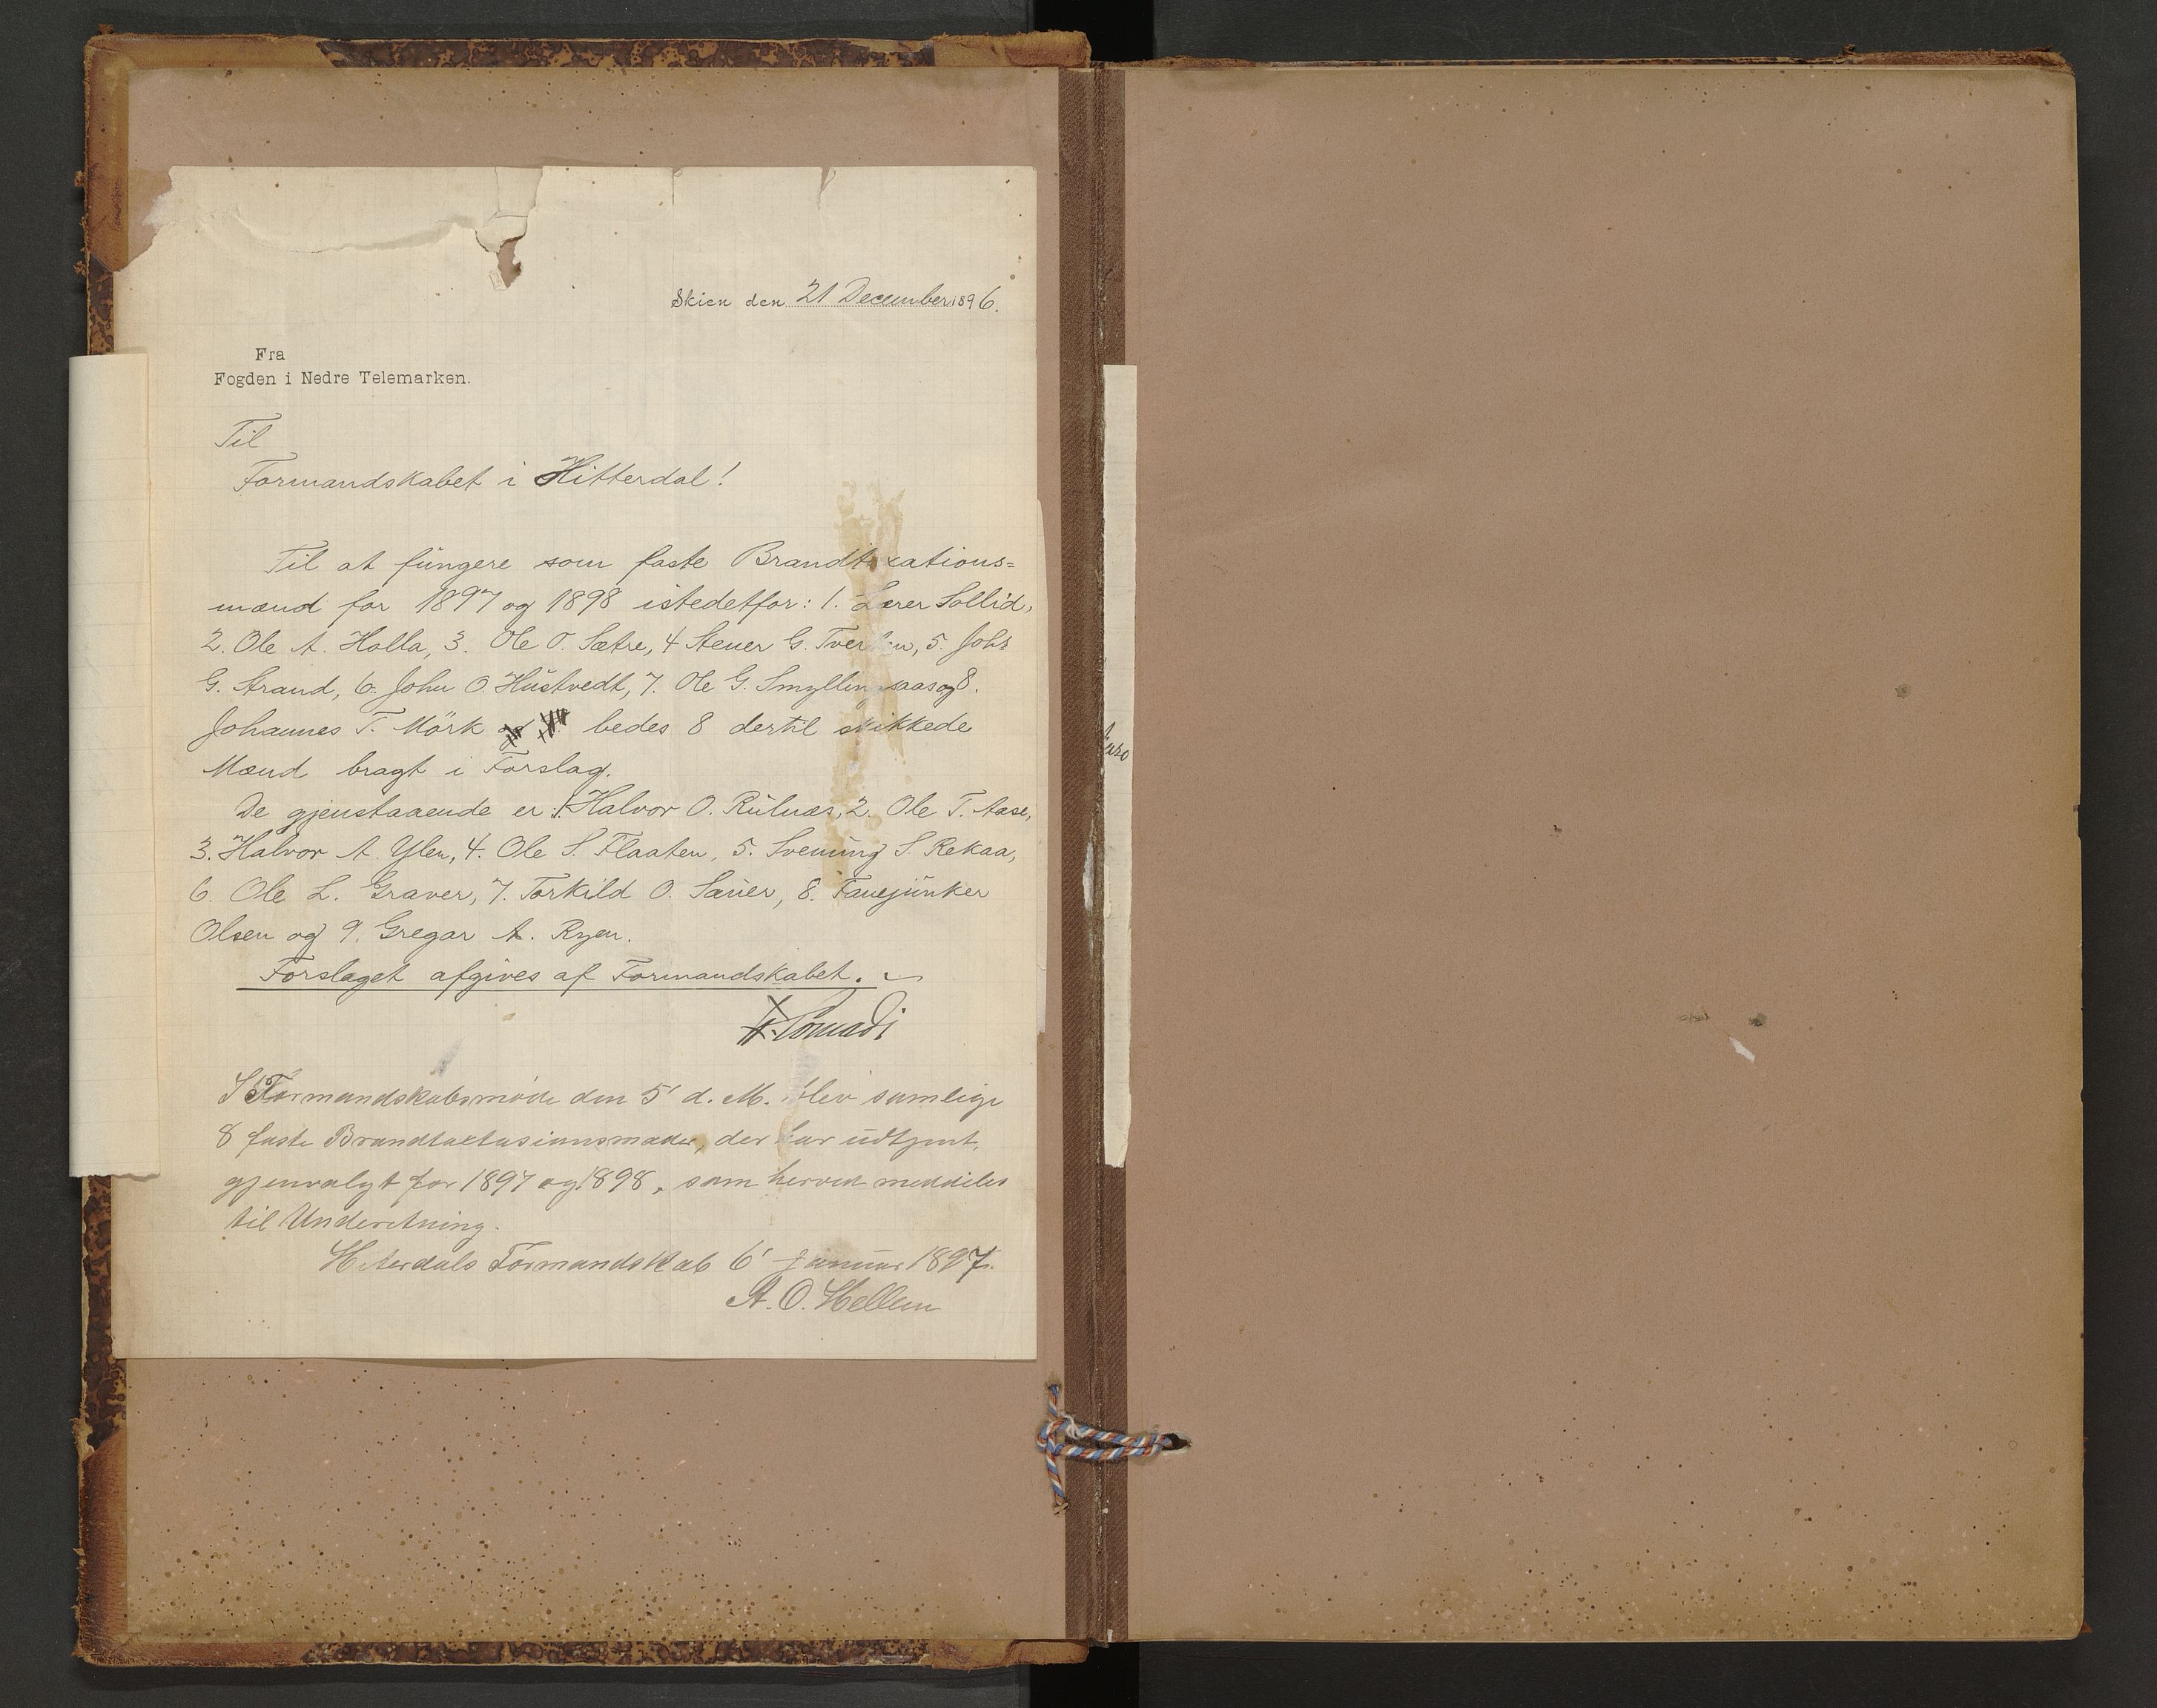 Skien den 21 December 1896.
Fra
Fogden i Nedre Telemarken.
Til
Formandskabet i Hitterdal!
Til at fungere som faste Brandtaxations=
mænd for 1897 og 1898 istedetfor: 1. Lærer Sollid,
2. Ole A. Holla, 3. Ole O. Sætre, 4 Stener G. 5. John
G. Strand, 6. John O. Hustvedt, 7. Ole G. og 8.
Johannes T. Mörk bedes 8 dertil skikkede
Mænd bragt i Forslag.
De gjenstaaende er: 1. Halvor O. Rulnæs, 2. Ole T. Aase,
3. Halvor A. Ylen, 4. Ole S. Flaaten, 5. Svenung S. Rekaa,
6. Ole L. Graver, 7. Torkild O. Sauer, 8. Fanejunker
Olsen og 9. Gregar A. Ryen.
Forslaget afgives af Formandskabet.
I Formandskabsmøde den 5' d. M. blev samlige
8 faste der har udtjent,
gjenvalgt for 1897 og 1898, som herved meddeles
til Underetning.
Hiterdals Formandskab 6' Januar 1897.
A. O. Hellem